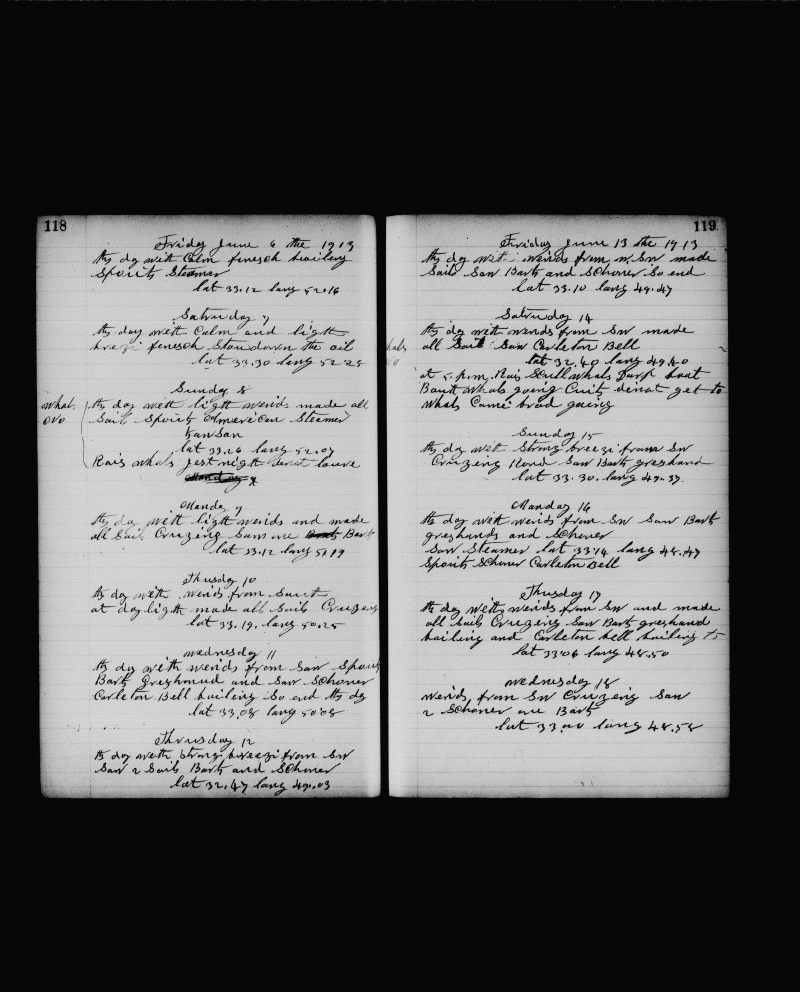 118
Friday June 6 the 1913
ths day with Calm finesch boiling
Spouts Steamer
lat 33.12 long 52.16
Saturday 7
ths day with Calm and light
breezi finesch Stoudown the oil
lat 33.30 long 52.25
Sunday 8
ths day with light weinds made all
Sail Spouts American Steamer
Kansan
lat 33.26 long 52.07
Rais whals jest night
whal.
Monday 9
ths day with light weinds and made
all Sail Cruzing Saw one Bark
lat 33.12 long 51 19
Thusday 10
ths day with weinds from
at day light made all Sails Cruzing
lat 33.19. long 50.25
wednesday 11
ths day with weinds from Saw Spouts
Bark Greyhound and Saw Schoner
Carleton Bell boiling So end ths day
lat 33.08 long 50.08
Thrusday 12
ths day with Strong breezi from Sw
Saw 2 Sails Bark and Schoner
lat 32.47 long 49.03
119
Friday June 13 the 1913
ths day with weinds from w.Sw made
Sail Saw Bark and Schoner So end
lat 33.10 long 49.47
Saturday 14
ths day with weinds from Sw made
all Sail Saw Carleton Bell
lat 32.40 long 49.40
at 5 p.m. Rais Scull whals boat
Boat whals going get to
whals Came brod going
Sunday 15
ths day with Strong breezi from Sw
Cruzing Saw Bark greyhound
lat 33.30. long 49.37.
Monday 16
ths day with weinds from Sw Saw Bark
greyhounds and Schoner
Saw Steamer lat 33.14 long 48.47
Spouts Schoner Carleton Bell
Thusday 17
ths day with weinds from Sw and made
all Sails Cruzing Saw Bark greyhound
boiling and Carleton bell boiling to
lat 33.06 long 48.50
wednesday 18
weinds from Sw Cruzeing Saw
2 Schoner one Bark
lat 33.00 long 48.58